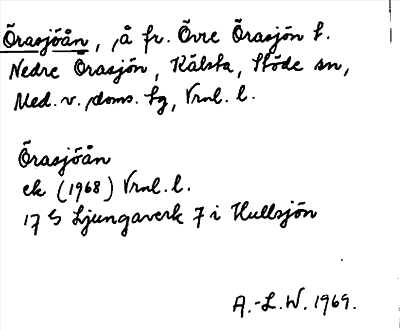 Örasjöån, å fr. Övre Örasjön t.
Nedre Örasjön, Kälsta, Stöde sn,
Med. v. doms. tg, Vrnl. l.
Örasjöån
ek (1968) Vrnl. l.
17 G Ljungaverk 7 i Hullsjön
A.-L. W. 1969.